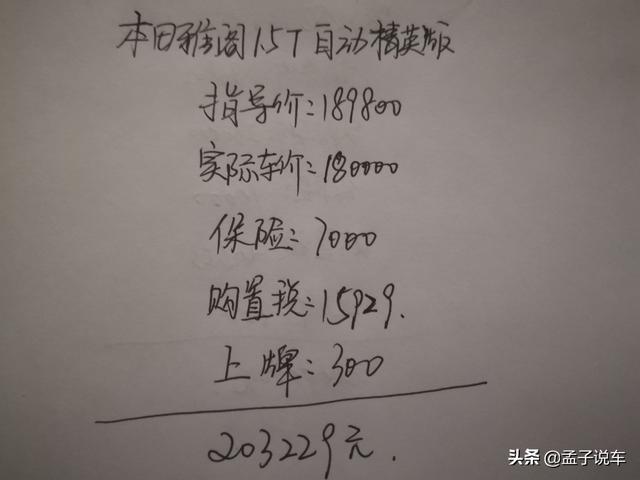 本田雅阁1.5T自动精英版
指导价：189800
实际车价：180000
保险：7000
购置税：15929.
上牌：300
203229元.
头条 @孟子说车